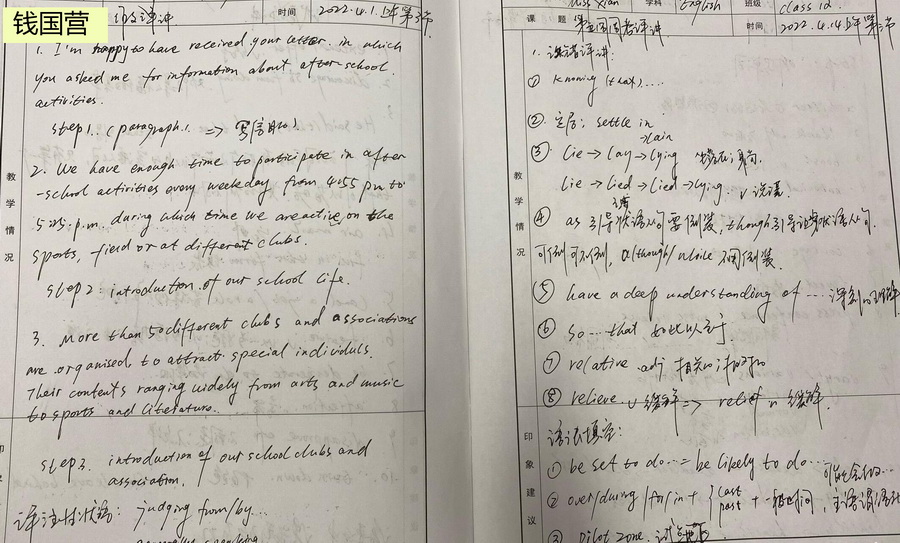 钱国营
时间 2022.4.1.
1. I'm happy to have received your letter. in which
you asked me for information about after-school
activities.
step1. (paragraph1. =>
2. We have enough time to participate in after
-school activities every weekday from 4:55 pm to
5:25.p.m. during which time we are active on the
sports, field or at different clubs.
step2: introduction of our school life.
3. More than 50 different clubs and associations
are organised to attract special individuls.
Their contents ranging widely from arts and music
to sports and literature.
step3. introduction of our school clubs and
association.
judging from/by...
教学情况
Miss Xian 学科 English 班级 class 12
课题 时间 2022.4.14
① knowing (that)....
② 定居; settle in
③ lie → lay → lain → lying
lie → lied → lied → lying. v 说谎
④ as 引导让步状语从句要倒装, though引导让步状语从句.
可倒可不倒, although/while 不用倒装.
⑤ have a deep understanding of ....
⑥ so...that 如此以至于
⑦ relative adj 相关的
⑧ relieve. v 缓解 => relief n 缓解
语法填空:
① be set to do... = be likely to do... 可能会的...
② over/during/for/in + { last past + 一段时间,
③ pilot zone.
教学情况
印象建议